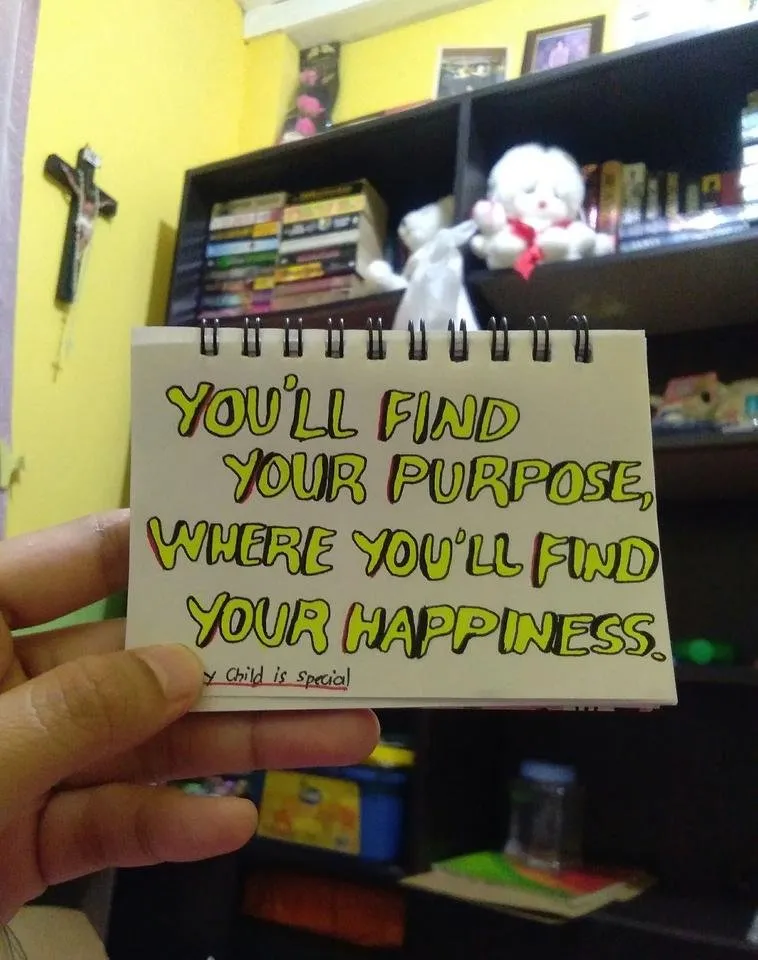 YOU'LL FIND
YOUR PURPOSE,
WHERE YOU'LL FIND
YOUR HAPPINESS.
Child is special